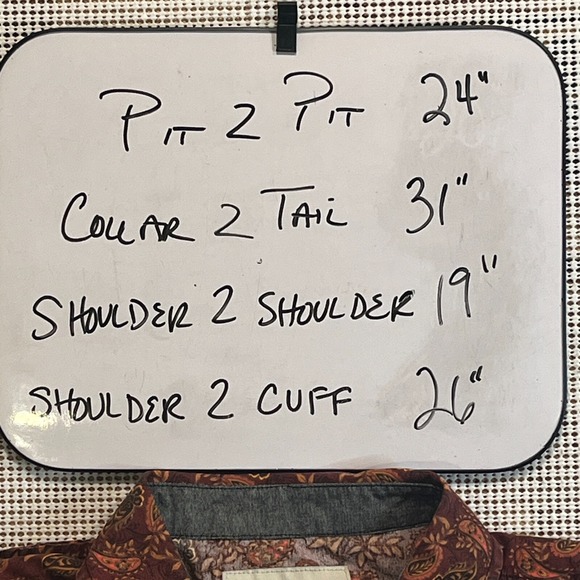 PIT 2 PIT 24"
COLLAR 2 TAIL 31"
SHOULDER 2 SHOULDER 19"
SHOULDER 2 CUFF 26"